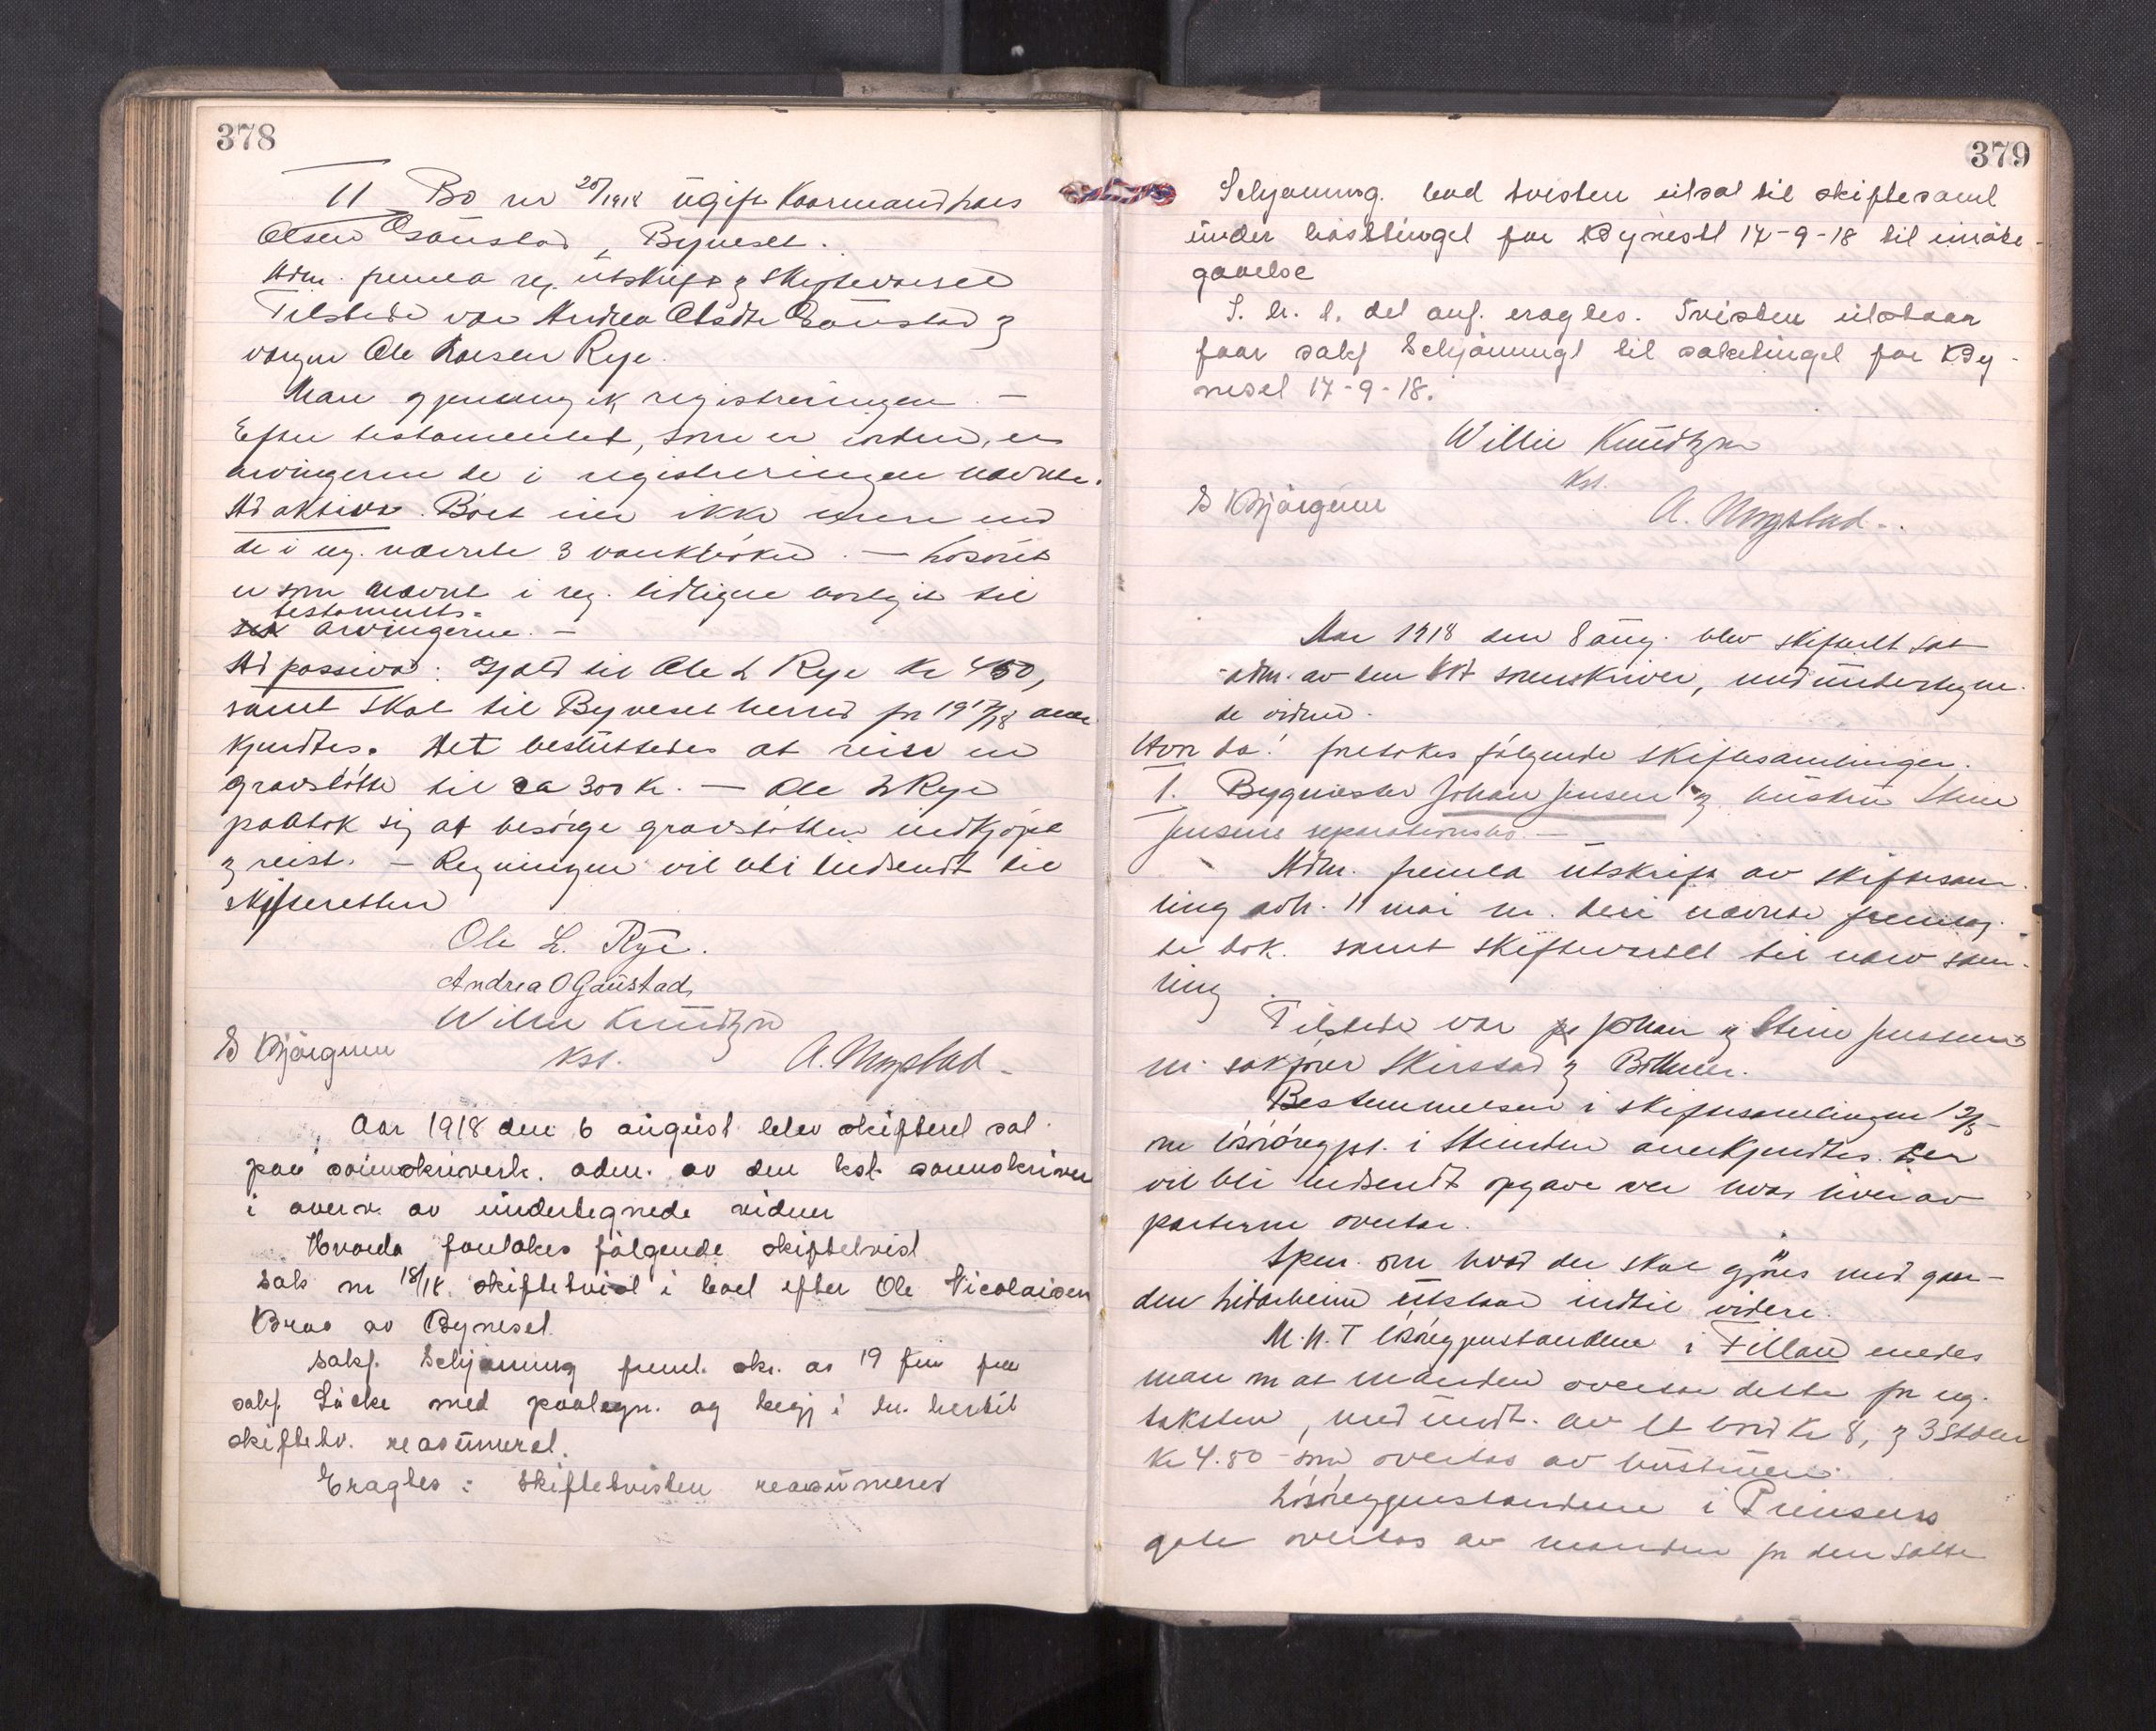 378
11 Bo nr 20/1918 ugift Kaarmand Lars
Olsen Gaustad, Byneset.
Adm. fremla reg. utskrift og skiftevarsel
Tilstede var Andrea Olsdtr Gaustad og
vergen Ole Larsen Rye.
Man gjennemgik registreringen. –
Efter testamentet, som er i orden, er
arvingerne de i registreringen nævnte.
Ad aktiva. Boet eier ikke mere end
de i reg. nævnte 3 bankbøker. – Løsøret
er som nævnt i reg. tidligere bortgit til
testaments-
arvingerne. –
Ad passiva: Gjæld til Ole L Rye Kr 450,
samt skat til Byneset herred for 1917/18 aner
kjendtes. Det besluttedes at reise en
gravstøtte til ca 300 kr. – Ole L Rye
paatok sig at besørge gravstøtten indkjøpt
og reist. – Regningen vil bli indsendt til
skifteretten
Ole L. Rye.
Andrea O Gaustad
Willie Knudtzon
S Bjørgum kst. A. Ringstad
Aar 1918 den 6 august blev skifteret sat
paa sorenskriverk. adm. av den kst. sorenskriver
i overv. av undertegnede vidner
Hvorda foretokes følgende skiftetvist
Sak nr 18/18. skiftetvist i boet efter Ole Nicolaisen
Braa av Byneset.
Sakf. Schjønning freml. skr. av 19 juni fra
sakf. Lücke med paategn. og begj i hr. hertil
skiftetv. reasumeret.
Eragtes: Skiftetvisten reasumeres
379
Schjønning. bad tvisten utsat til skiftesaml
under høsttinget for Byneset 17-9-18 til imøte-
gaaelse
S. br. l. det auf. eragtes. Tvisten utstaar
paa sakf Schjønningt til saketinget for By-
neset 17-9-18.
Willie Knudtzon
kst.
S Bjørgum A. Ringstad
Aar 1918 den 8 aug. blev skifteret sat
adm. av den kst sorenskriver, med undertegne-
de vidner.
Hvor da! foretokes følgende skiftesamlinger.
1. Bygmester Johan Jensen og hustru Stine
Jensens separationsbo. –
Adm. fremla utskrift av skiftesam-
ling avh. 11 mai m. deri nævnte fremlag-
te dok. samt skiftevarsel til nærv sam-
ling
Tilstede var Johan og Stine Jensen
m. sakfører Skirstad og Bøhmer.
Bestemmelsen i skiftesamlingen 12/5
m løsøregjst. i Steinden anerkjendtes. Der
vil bli indsendt opgave over hvad hver av
parterne overtar.
Spm. om hvad der skal gjøres med gaar-
den Lidarheim utstaar indtil videre.
M.H.T løsøregjenstandene i Tillan enedes
man om at manden overtar dette for reg.
taksten, med undt. av et bord kr 8, og 3 stoler
kr 4.50 som overtas av hustruen.
Løsøregjenstandene i Prinsens
gate overtas av manden for den satte